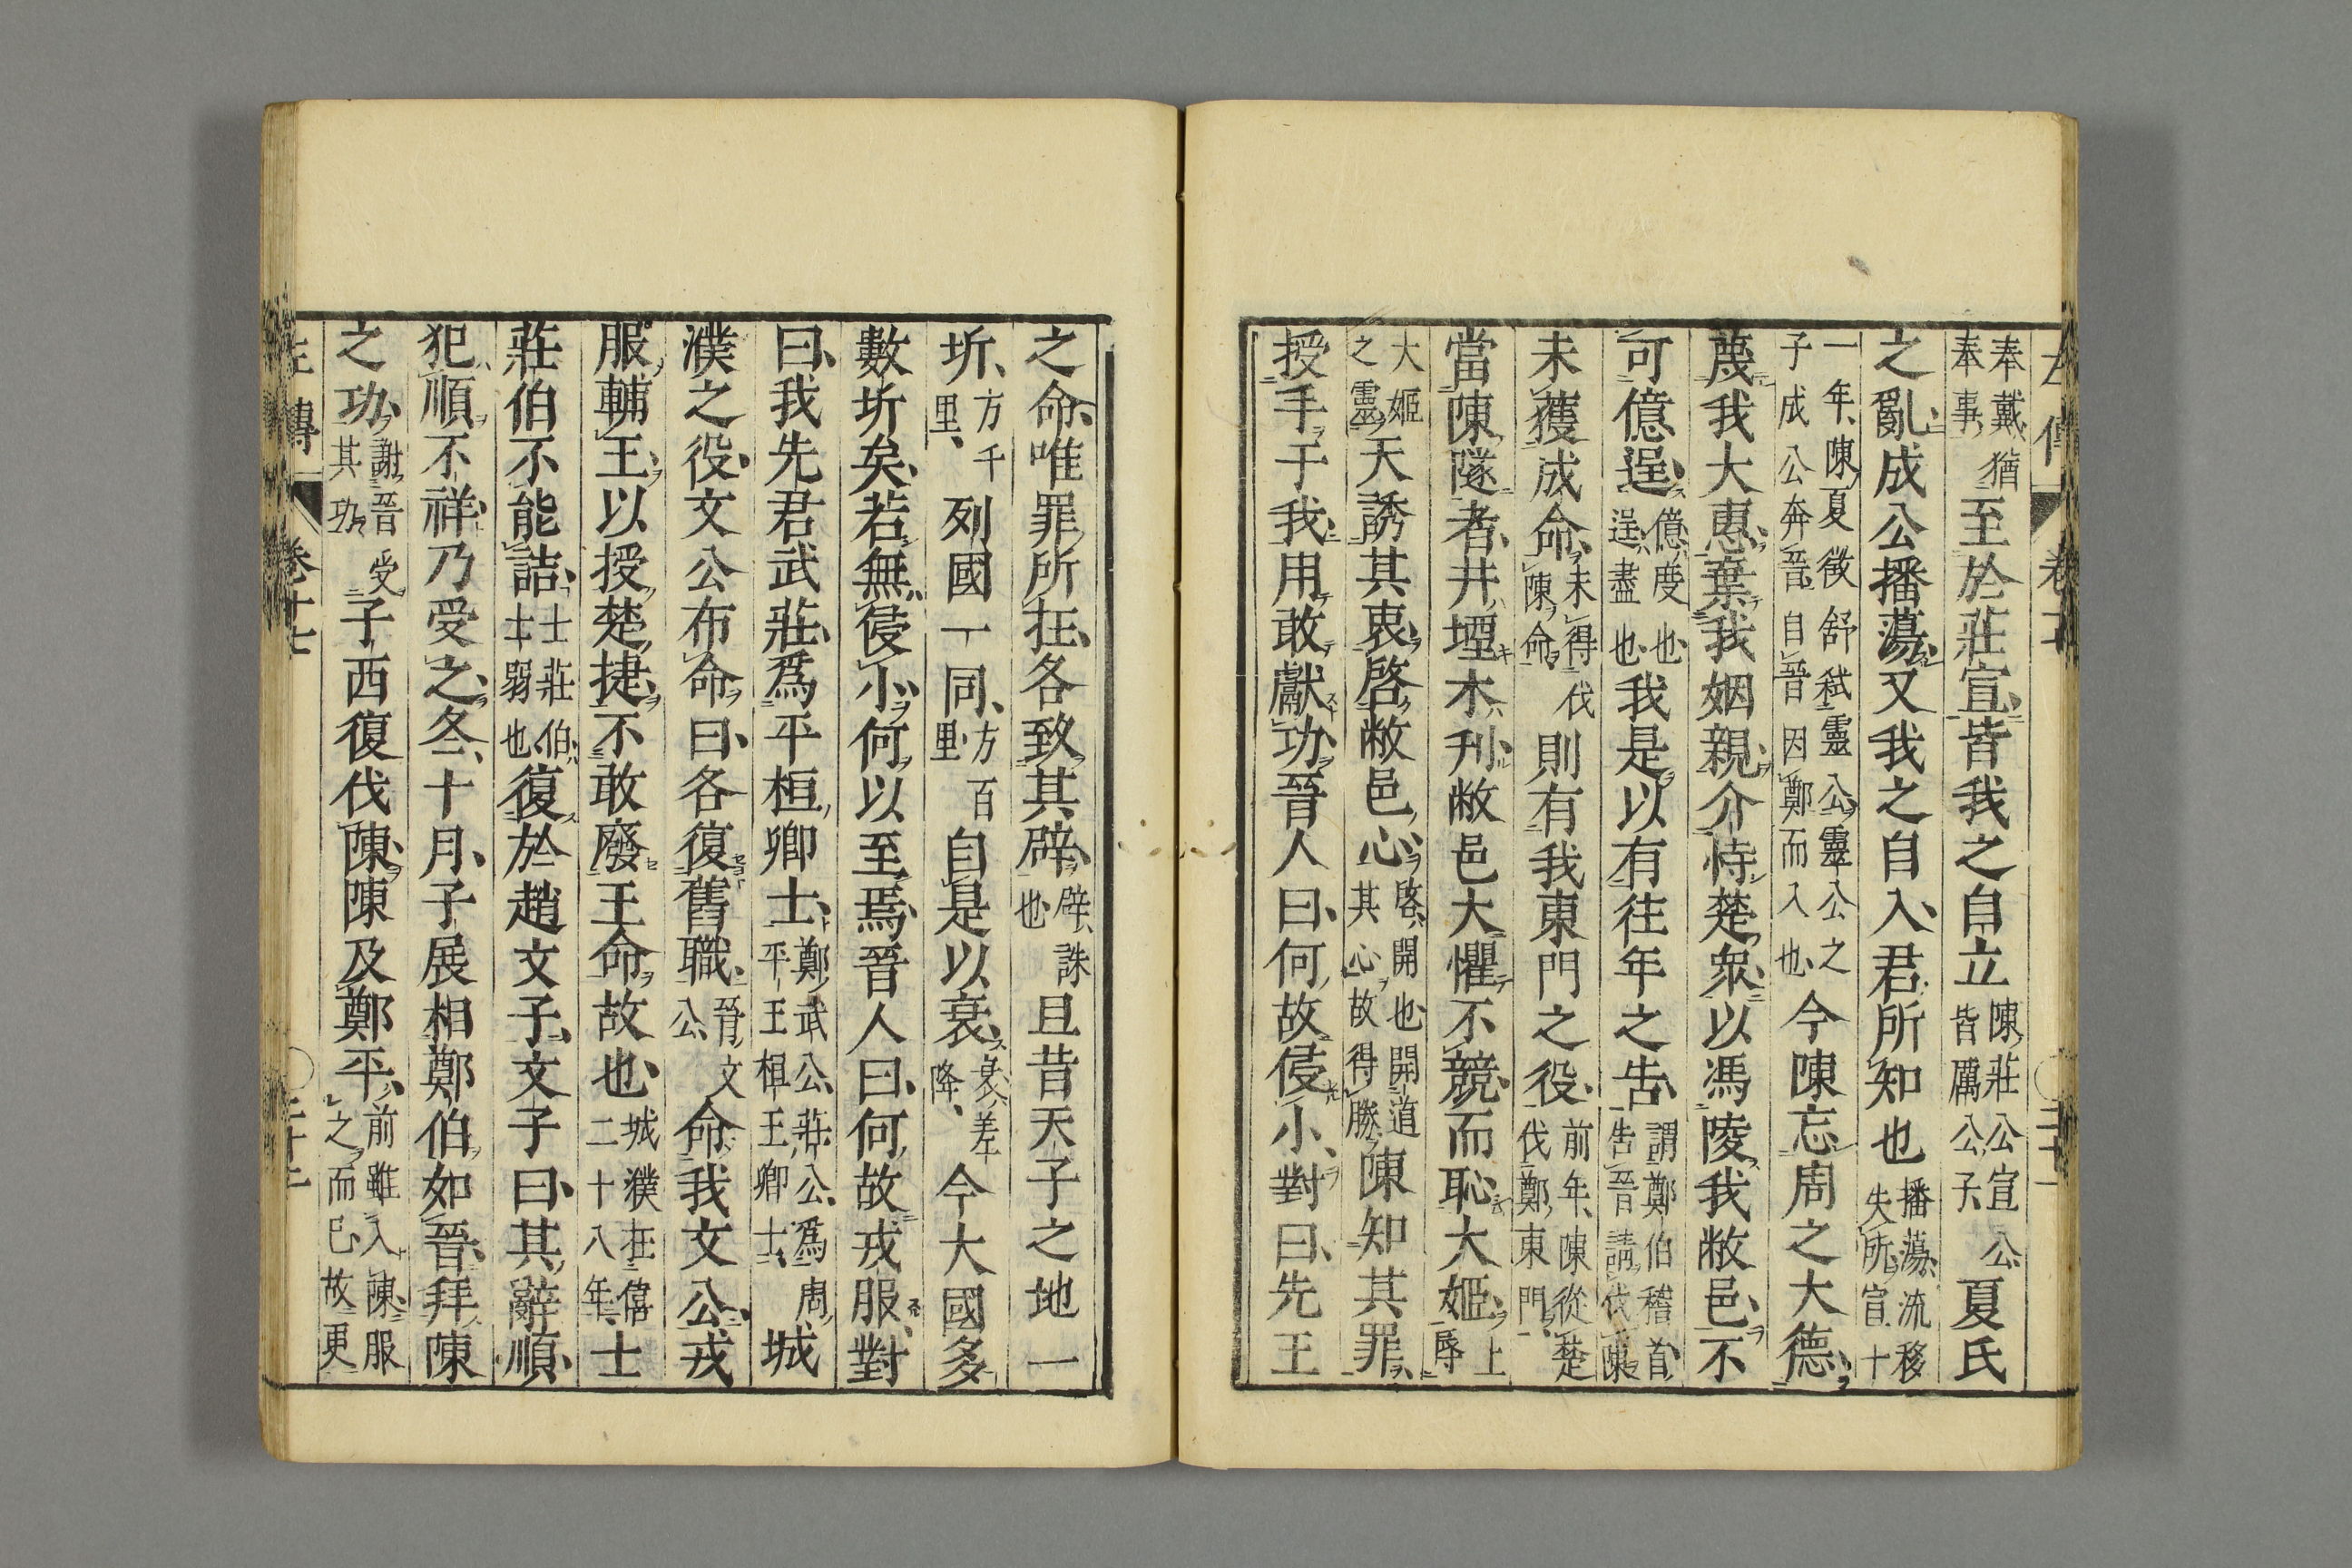 奉戴猶奉事至於莊宣皆我之自立陳莊公宣公皆厲公子夏氏
之亂成公播蕩又我之自入君所知也播蕩流移失所宣十
一年陳夏徵舒弒靈公靈公之子成公奔晉自晉因鄭而入也今陳忘周之大德
蔑我大惠棄我姻親介恃楚衆以馮陵我敝邑不
可億逞億度也逞盡也我是以有往年之告謂鄭伯稽首告晉請伐陳
未獲成命未得伐陳命則有我東門之役前年陳從楚伐鄭東門
當陳隧者井堙木刋敝邑大懼不競而恥大姬上辱
大姬之靈天誘其衷啓敝邑心啓開也開道其心故得勝陳知其罪
授手于我用敢獻功晉人曰何故侵小對曰先王
之命唯罪所在各致其辟辟誅也且昔天子之地一
圻方千里列國一同方百里自是以衰衰差降今大國多
數圻矣若無侵小何以至焉晉人曰何故戎服對
曰我先君武莊爲平桓卿士鄭武公莊公爲周平王桓王卿士城
濮之役文公布命曰各復舊職晉文公命我文公戎
服輔王以授楚捷不敢廢王命故也城濮在僖二十八年士
莊伯不能詰士莊伯士弱也復於趙文子文子曰其辭順
犯順不祥乃受之冬十月子展相鄭伯如晉拜陳
之功謝晉受其功子西復伐陳陳及鄭平前雖入陳服之而已故更
左傳 卷十七